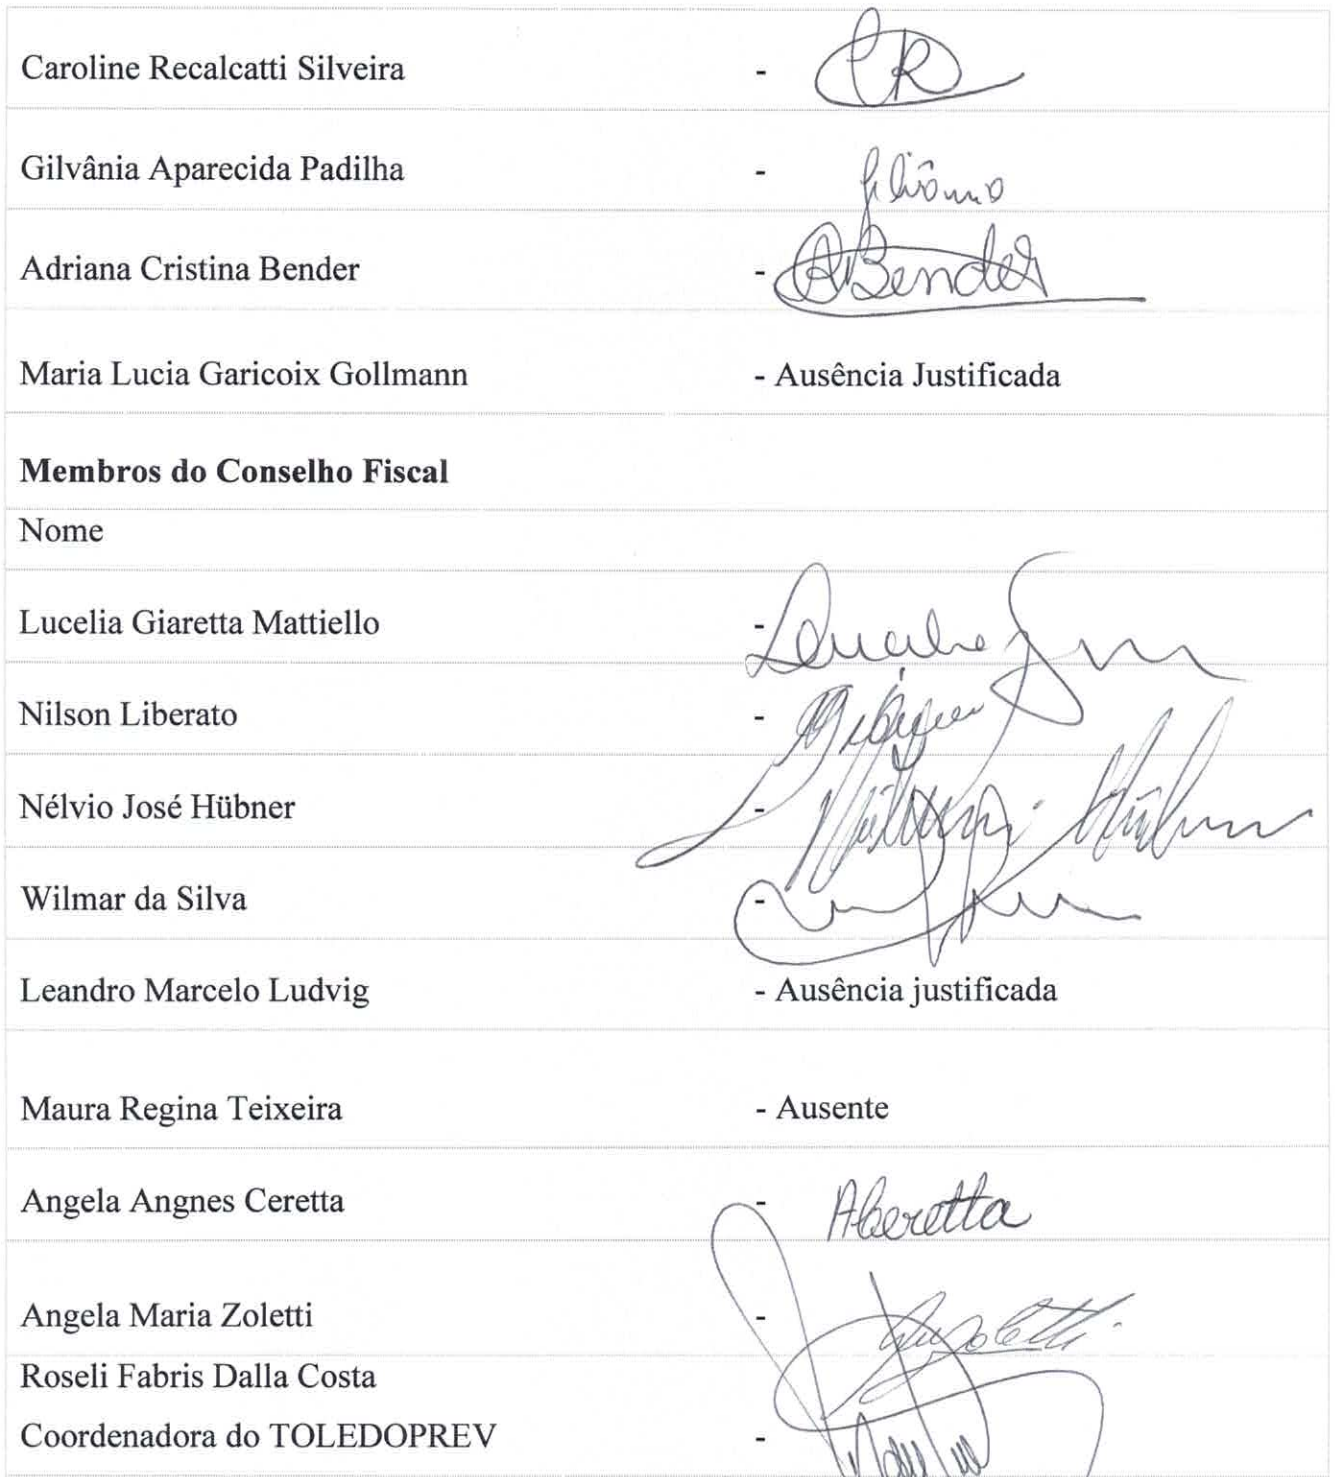 Caroline Recalcatti Silveira - CR
Gilvânia Aparecida Padilha - Gilvânia
Adriana Cristina Bender - ABender
Maria Lucia Garicoix Gollmann - Ausência Justificada
Membros do Conselho Fiscal
Nome
Lucelia Giaretta Mattiello -
Nilson Liberato -
Nélvio José Hübner -
Wilmar da Silva -
Leandro Marcelo Ludvig - Ausência justificada
Maura Regina Teixeira - Ausente
Angela Angnes Ceretta - ACeretta
Angela Maria Zoletti -
Roseli Fabris Dalla Costa
Coordenadora do TOLEDOPREV -